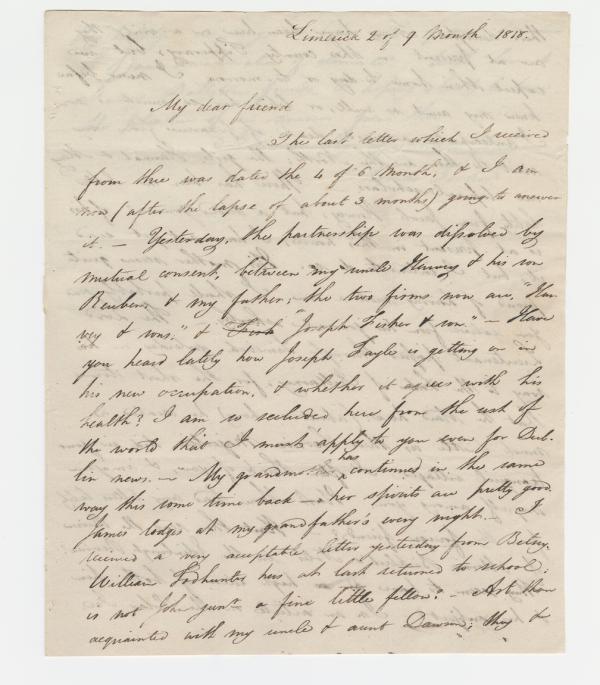 Limerick 2 of 9 Month 1818.
My dear friend
The last letter which I received
from thee was dated the 4 of 6 Month, & I am
now (after the lapse of about 3 months) going to answer
it. — Yesterday, the partnership was dissolved by
mutual consent, between my uncle Harvey & his son
Reuben, & my father; the two firms now are, "Har
vey & sons," & "Joseph Fisher & son." — Have
you heard lately how Joseph Fayle is getting on in
his new occupation, & whether it agrees with his
health? I am so secluded here from the rest of
the world that I must apply to you even for Dub-
lin news. — My grandmother has continued in the same
way this some time back — her spirits are pretty good.
James lodges at my grandfather's every night. — I
received a very acceptable letter yesterday from Betsy.
William Todhunter has at last returned to school;
is not John junr. a fine little fellow? — Art thou
acquainted with my uncle & aunt Dawson; they &